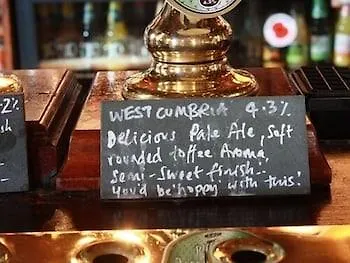 WEST CUMBRIA 4.3%
Delicious Pale Ale, soft
rounded toffee Aroma,
Semi-Sweet finish..
You'd be 'hoppy with this!
.2%
sh